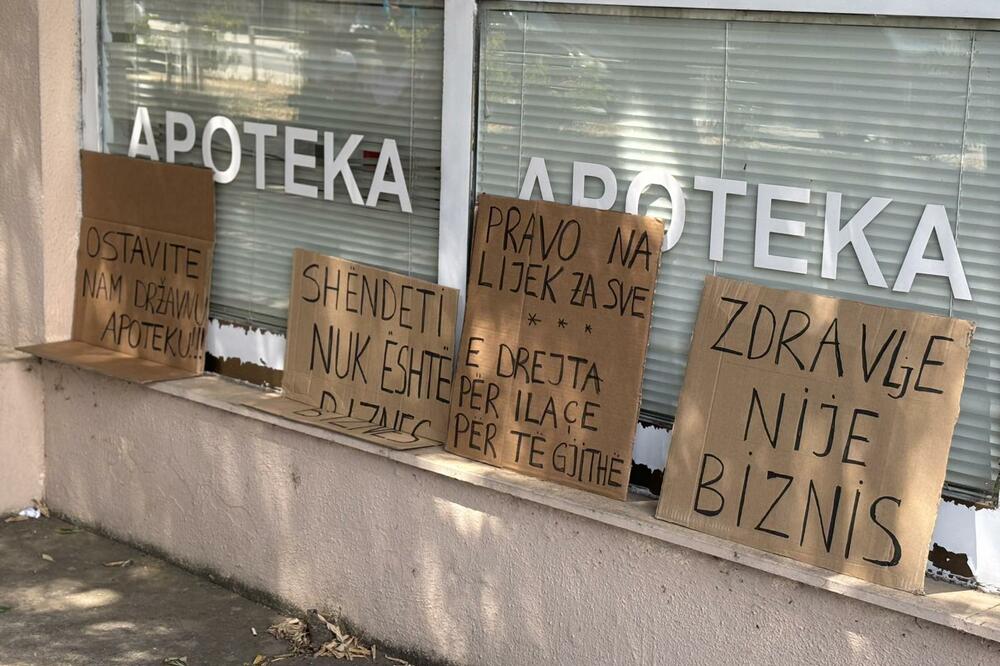 APOTEKA
APOTEKA
OSTAVITE
NAM DRŽAVNU
APOTEKU!!!
SHËNDETI
NUK ËSHTË
BIZNES
PRAVO NA
LIJEK ZA SVE
* * *
E DREJTA
PËR ILAÇE
PËR TË GJITHË
ZDRAVLJE
NIJE
BIZNIS